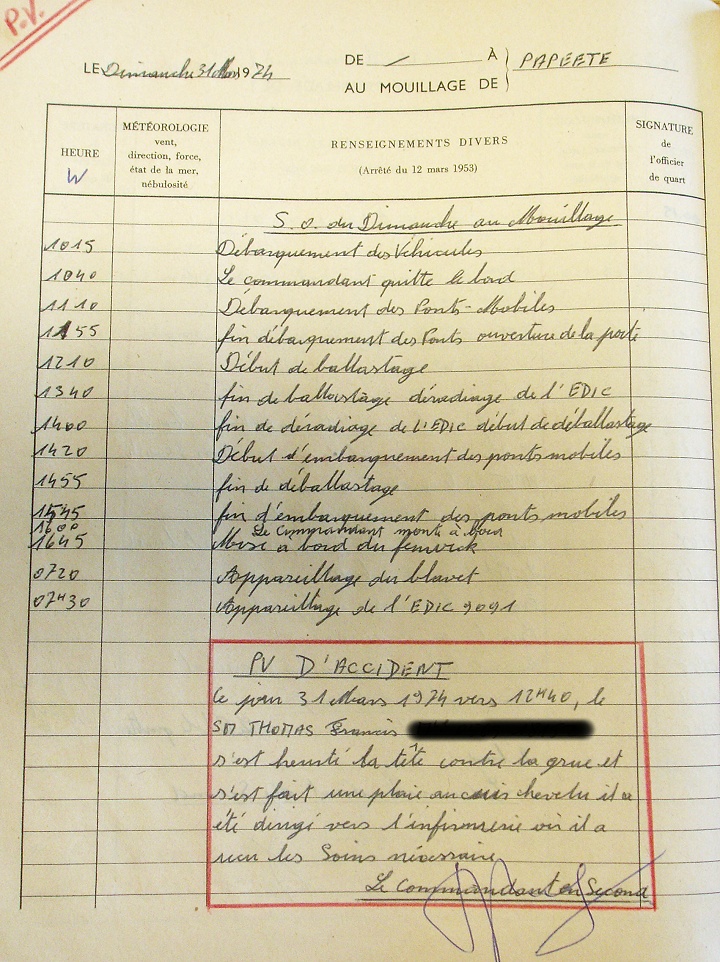 P.V.
LE Dimanche 31 Mars 1974
DE / À
AU MOUILLAGE DE
PAPEETE
HEURE
W
MÉTÉOROLOGIE
vent,
direction, force,
état de la mer,
nébulosité
RENSEIGNEMENTS DIVERS
(Arrêté du 12 mars 1953)
SIGNATURE
de
l'officier
de quart
S. O. du Dimanche au Mouillage
1015 Débarquement des Véhicules
1040 Le commandant quitte le bord
1110 Débarquement des Ponts-Mobiles
1155 fin débarquement des Ponts ouverture de la porte
1210 Début de ballastage
1340 fin de ballastage déradiage de l'EDIC
1400 fin de déradiage de l'EDIC début de déballastage
1420 Début d'embarquement des ponts mobiles
1455 fin de déballastage
1545 fin d'embarquement des ponts mobiles
1600 Le Commandant monte à bord
1645 Mise à bord du fenwick
0720 Appareillage du blavet
07H30 Appareillage de l'EDIC 9091
PV D'ACCIDENT
Ce jour 31 Mars 1974 vers 12H40, le
SM THOMAS Francis
s'est heurté la tête contre la grue et
s'est fait une plaie au cuir chevelu il a
été dirigé vers l'infirmerie où il a
recu les Soins nécessaire
Le Commandant en Second